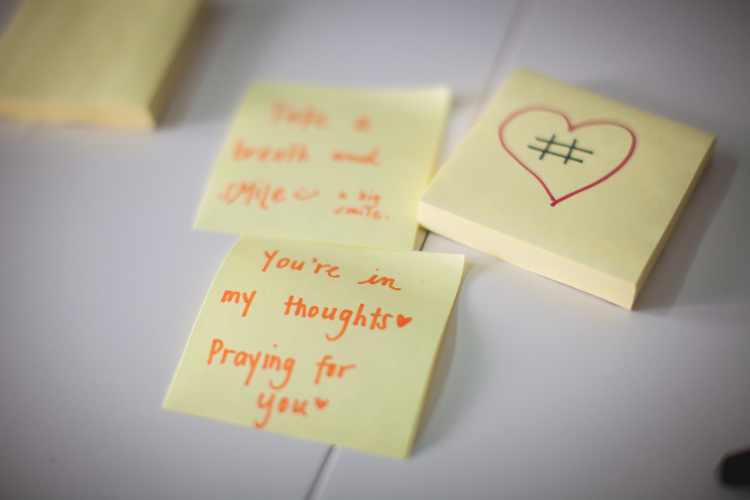 Take a
breath and
SMile a big
smile.
#
You're in
my thoughts
Praying for
you